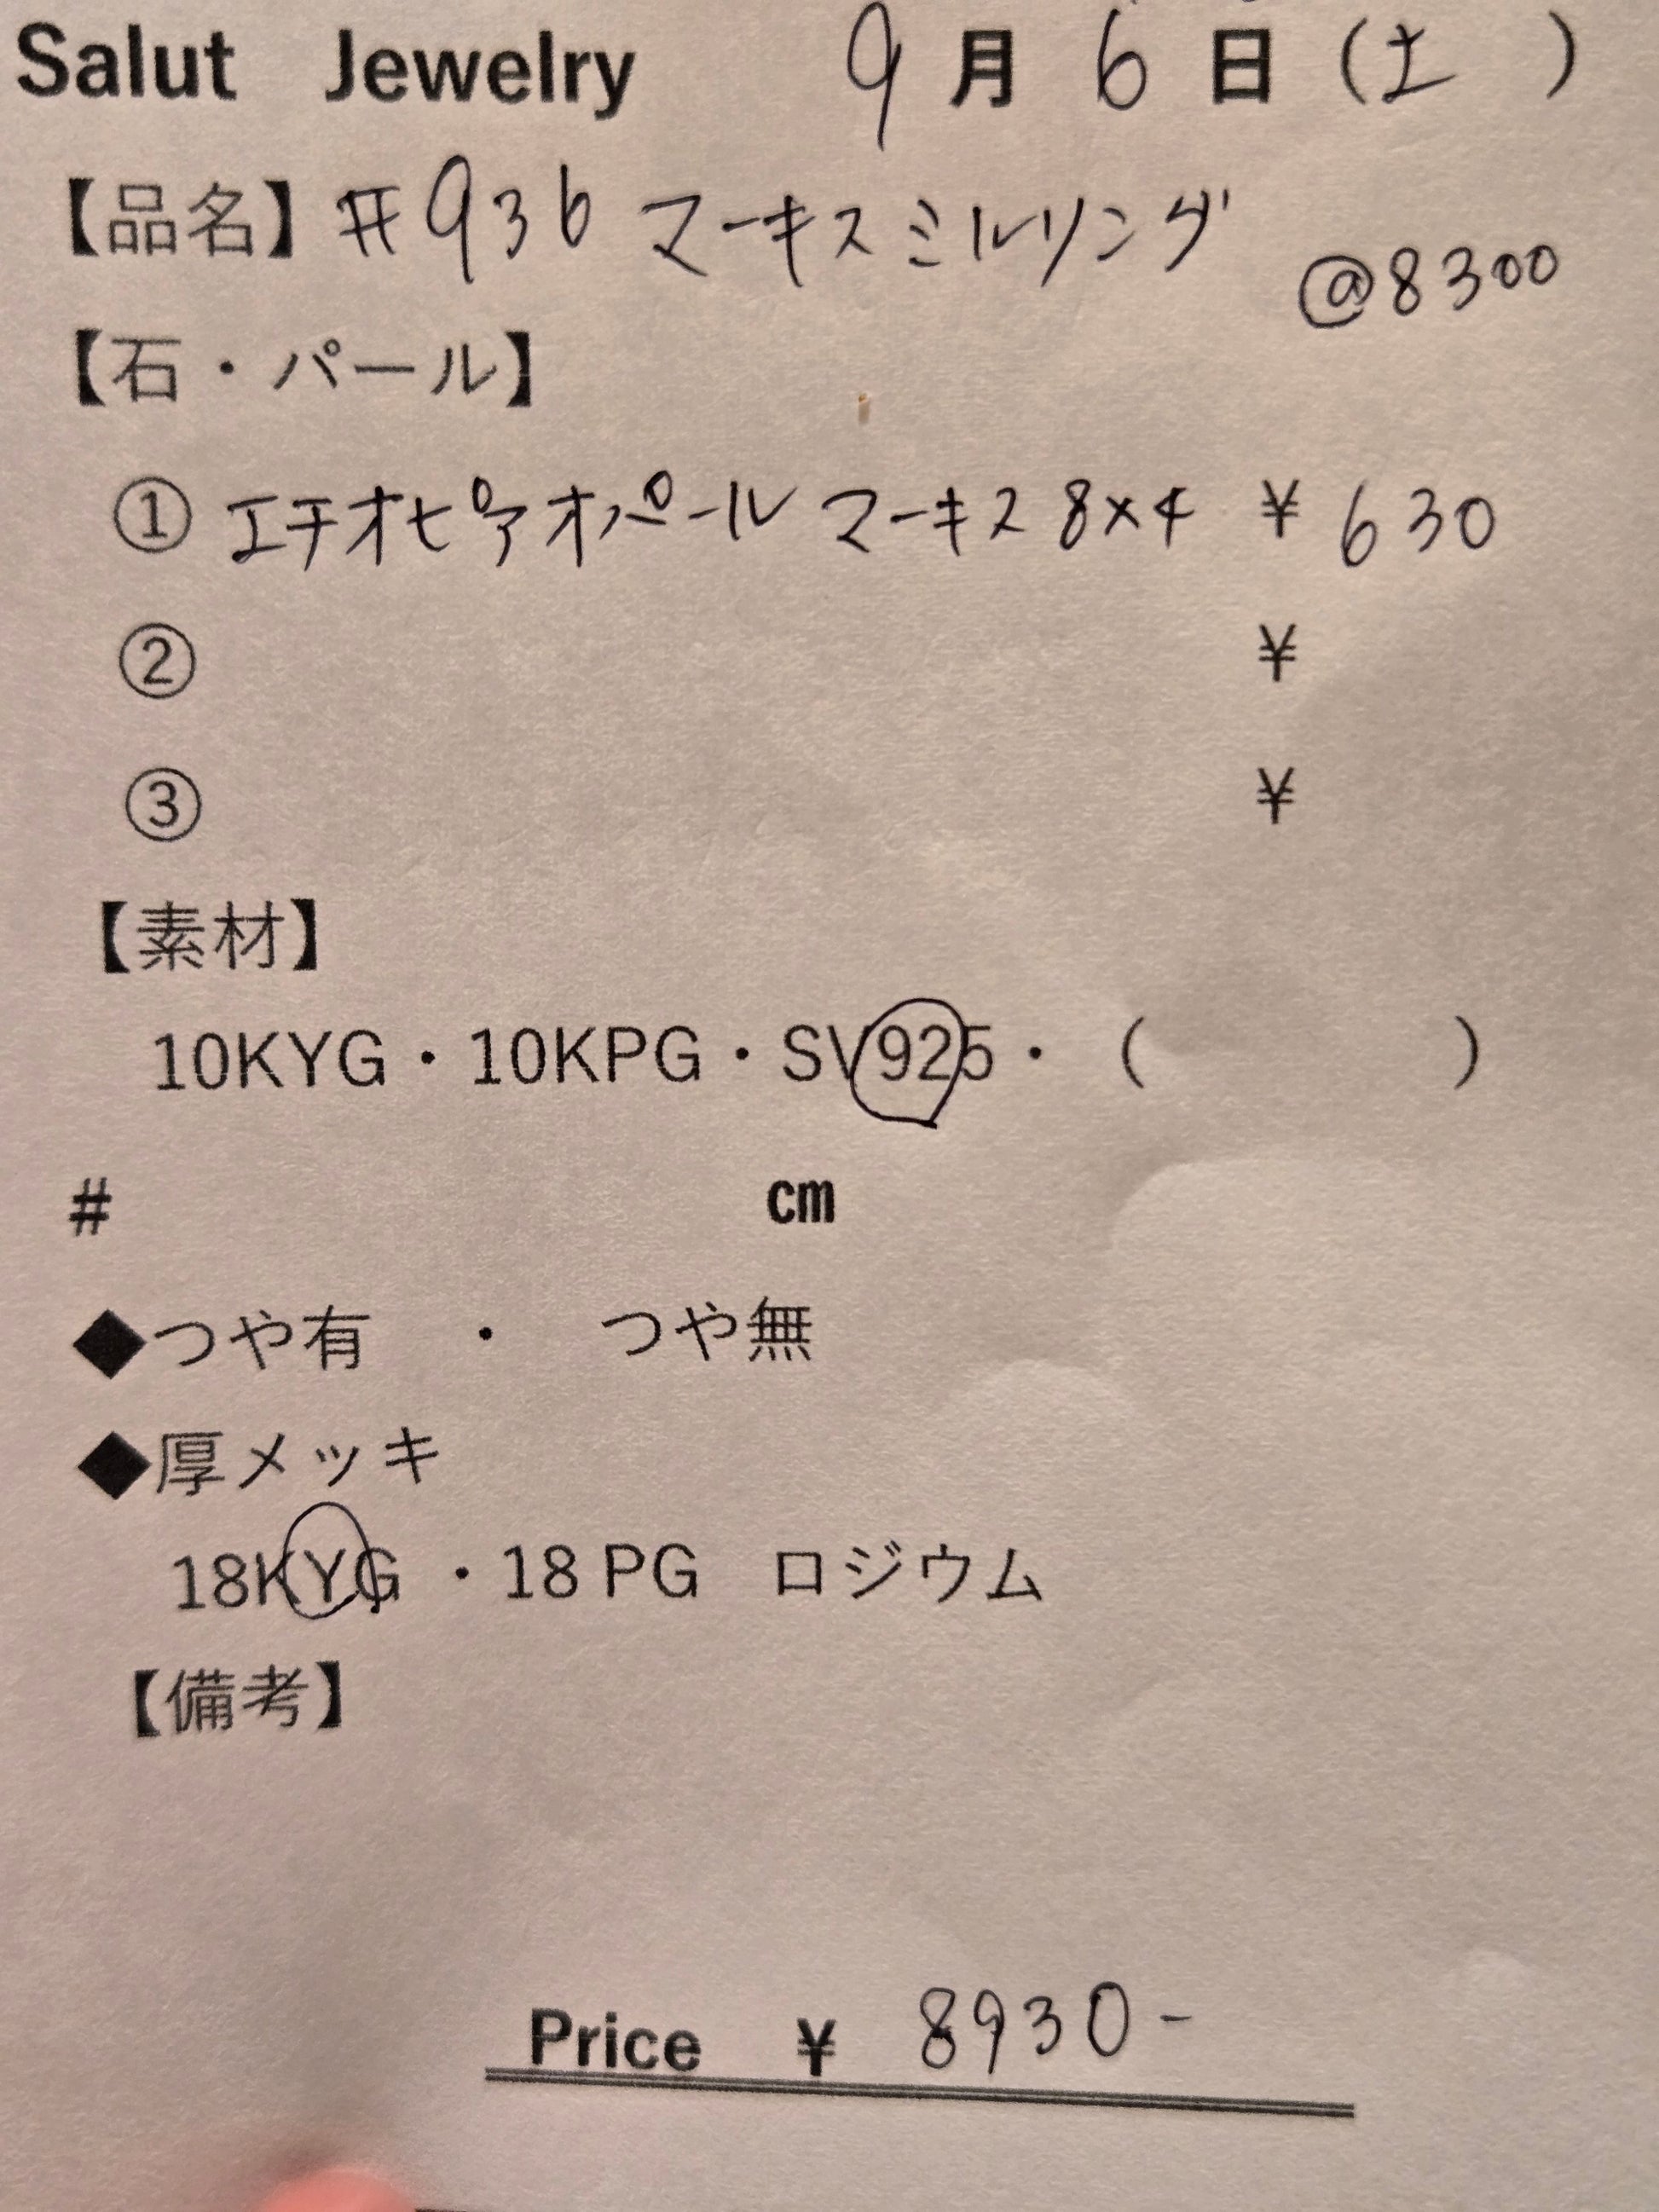 Salut Jewelry 9月6日(土)
【品名】#936 マーキスミルリング
@8300
【石・パール】
① エチオピアオパール マーキス 8×4 ¥630
② ¥
③ ¥
【素材】
10KYG・10KPG・SV925・( )
# cm
◆つや有 ・ つや無
◆厚メッキ
18KYG ・18 PG ロジウム
【備考】
Price ¥ 8930-